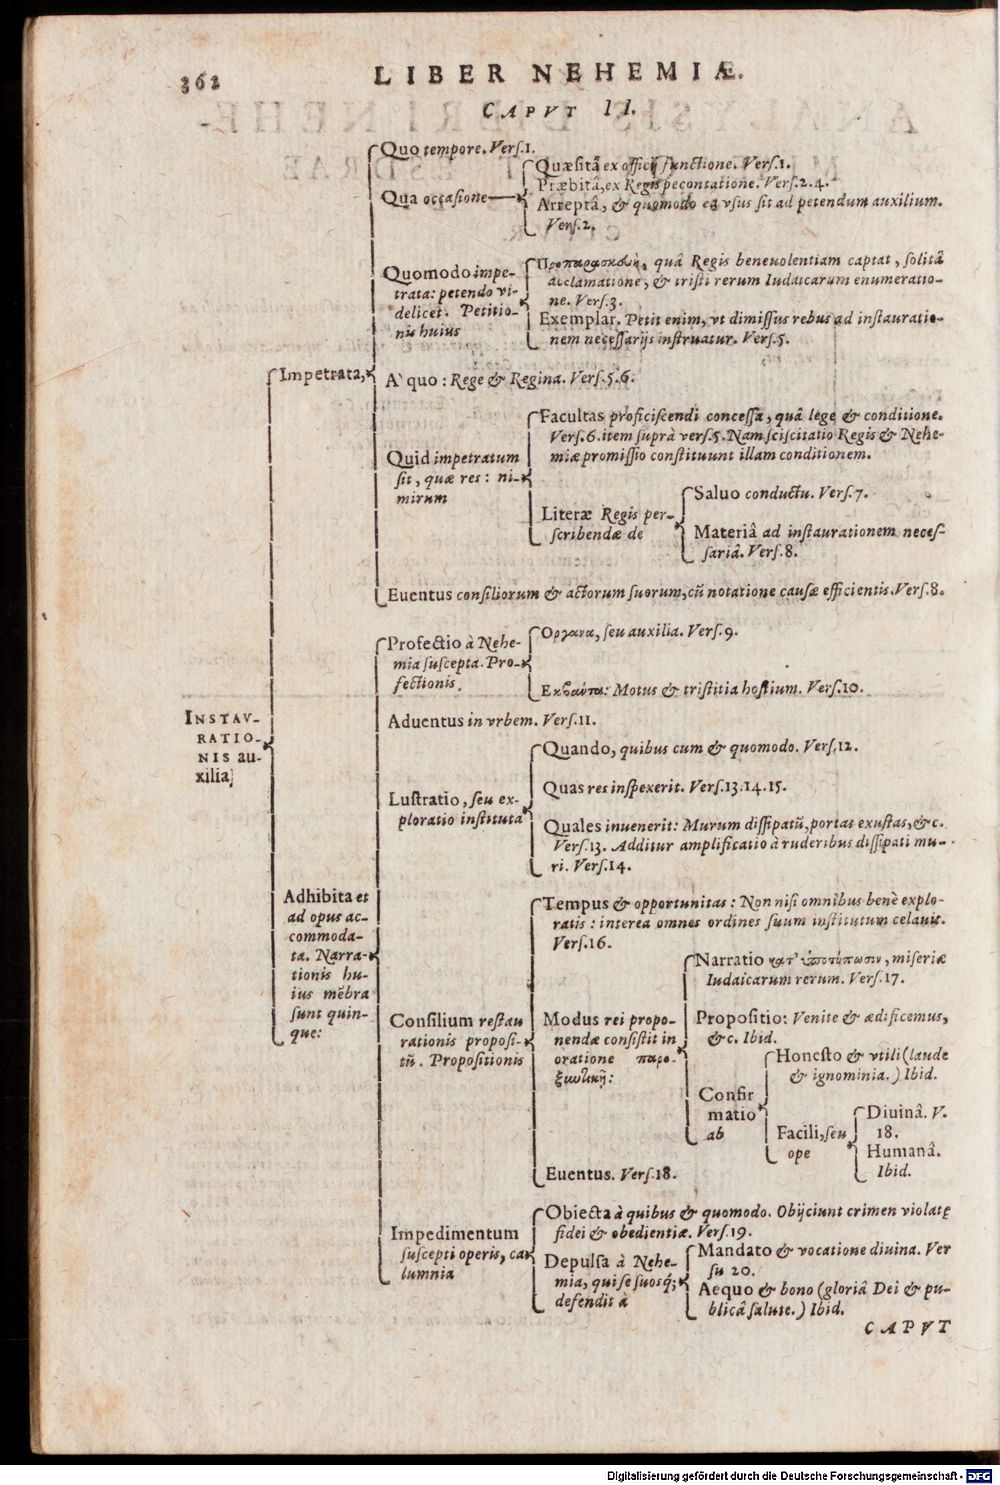 362
LIBER NEHEMIÆ.
CAPVT II.
Quo tempore. Verſ.1.
Qua occaſione
Quæſitâ ex officij functione. Verſ.1.
Præbitâ, ex Regis pecontatione. Verſ.2.4.
Arreptâ, & quomodo ea vſus ſit ad petendum auxilium.
Verſ.2.
Quomodo impe-
trata: petendo vi-
delicet. Petitio-
nis huius
Προπαρασκευὴ, quâ Regis beneuolentiam captat, ſolitâ
acclamatione, & triſti rerum Iudaicarum enumeratio-
ne. Verſ.3.
Exemplar. Petit enim, vt dimiſſus rebus ad inſtauratio-
nem neceſſarijs inſtruatur. Verſ.5.
Impetrata,
A' quo: Rege & Regina. Verſ.5.6.
Quid impetratum
ſit, quæ res: ni-
mirum
Facultas proficiſcendi conceſſa, quâ lege & conditione.
Verſ.6. item ſuprà verſ.5. Nam ſciſcitatio Regis & Nehe-
miæ promiſſio conſtituunt illam conditionem.
Literæ Regis per-
ſcribendæ de
Saluo conductu. Verſ.7.
Materiâ ad inſtaurationem neceſ-
ſariâ. Verſ.8.
Euentus conſiliorum & actorum ſuorum, cũ notatione cauſæ efficientis. Verſ.8.
Profectio à Nehe-
mia ſuſcepta. Pro-
fectionis.
Οργανα, ſeu auxilia. Verſ.9.
Εκβαύτα: Motus & triſtitia hoſtium. Verſ.10.
Aduentus in vrbem. Verſ.11.
INSTAV-
RATIO-
NIS au-
xilia,
Luſtratio, ſeu ex-
ploratio inſtituta
Quando, quibus cum & quomodo. Verſ.12.
Quas res inſpexerit. Verſ.13.14.15.
Quales inuenerit: Murum diſſipatũ, portas exuſtas, &c.
Verſ.13. Additur amplificatio à ruderibus diſſipati mu-
ri. Verſ.14.
Adhibita et
ad opus ac-
commoda-
ta. Narra-
tionis hu-
ius mẽbra
ſunt quin-
que:
Conſilium reſtau
rationis propoſi-
tũ. Propoſitionis
Tempus & opportunitas: Non niſi omnibus benè explo-
ratis: interea omnes ordines ſuum inſtitutum celauit.
Verſ.16.
Modus rei propo-
nendæ conſiſtit in
oratione παρο-
ξυντικῇ:
Narratio κατ' ὑποτύπωσιν, miſeriæ
Iudaicarum rerum. Verſ.17.
Propoſitio: Venite & ædificemus,
&c. Ibid.
Confir
matio
ab
Honeſto & vtili (laude
& ignominia.) Ibid.
Facili, ſeu
ope
Diuinâ. V.
18.
Humanâ.
Ibid.
Euentus. Verſ.18.
Impedimentum
ſuſcepti operis, ca
lumnia
Obiecta à quibus & quomodo. Obijciunt crimen violatę
fidei & obedientiæ. Verſ.19.
Depulſa à Nehe-
mia, qui ſe ſuosq;
defendit à
Mandato & vocatione diuina. Ver
ſu 20.
Aequo & bono (gloriâ Dei & pu-
blicâ ſalute.) Ibid.
CAPVT
Digitalisierung gefördert durch die Deutsche Forschungsgemeinschaft - DFG